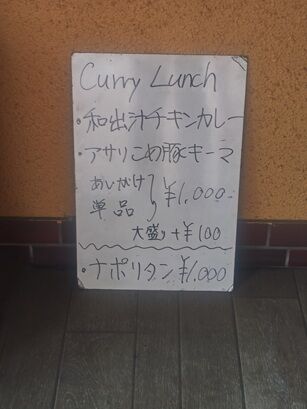 Curry Lunch
・和出汁チキンカレー
・アサリこめ豚キーマ
あいがけ
単品 ¥1,000-
大盛り+¥100
・ナポリタン ¥1,000